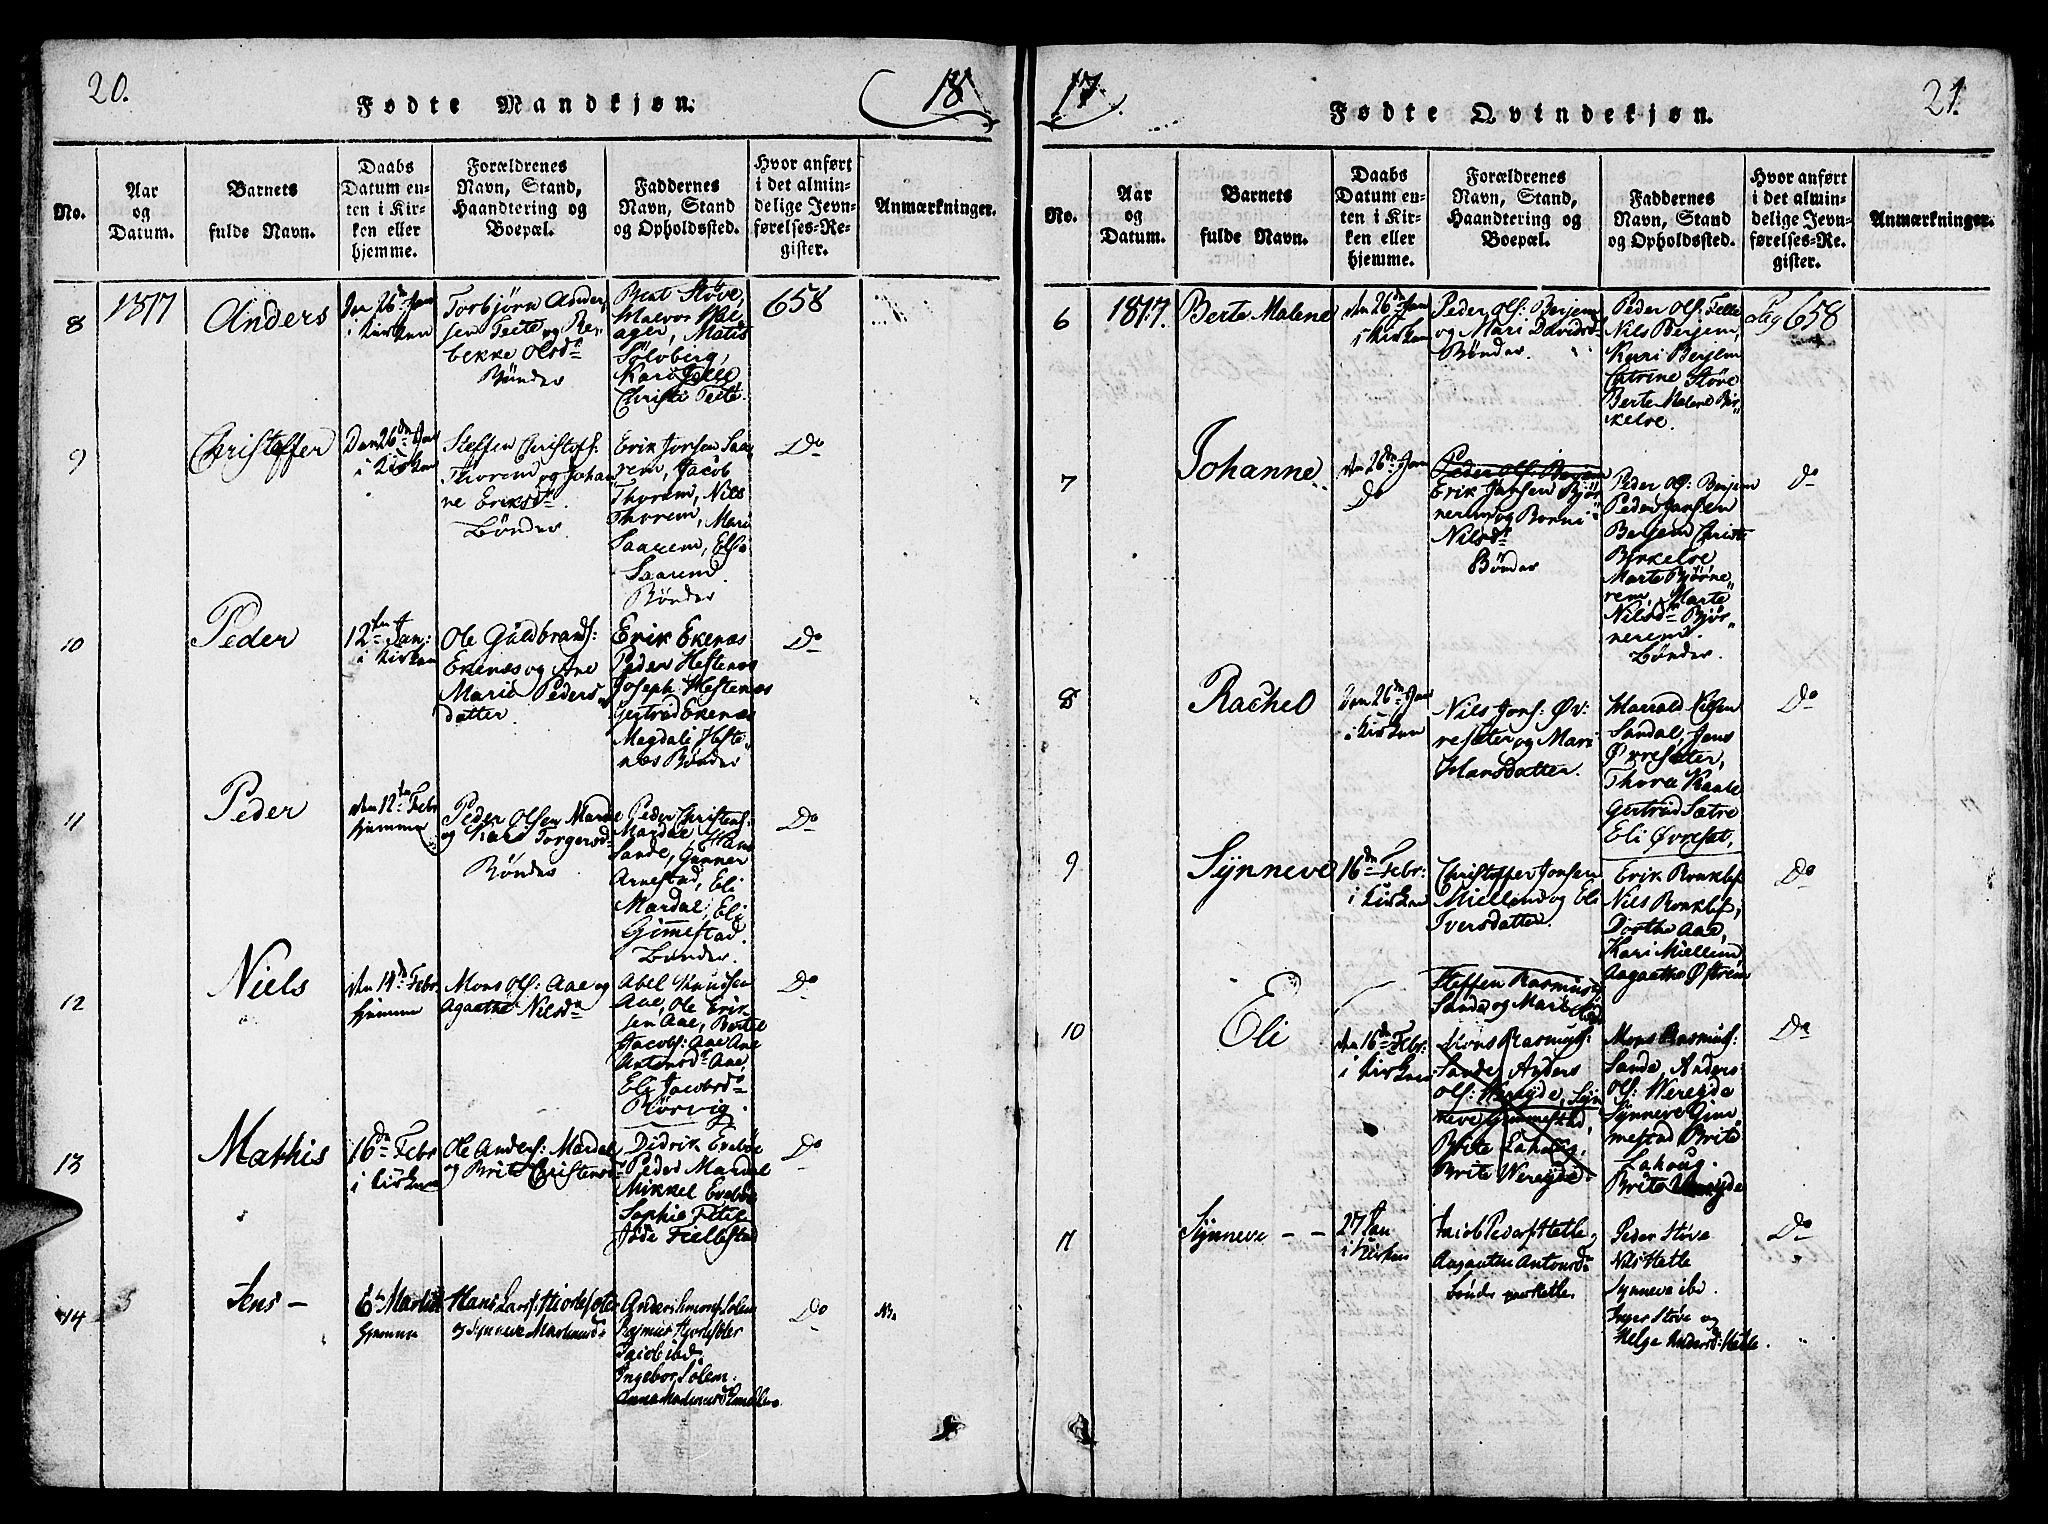 20.
Fødte Mandkjøn.
18
No.
Aar
og
Datum.
Barnets
fulde Navn.
Daabs
Datum en-
ten i Kir-
ken eller
hjemme.
Forældrenes
Navn, Stand,
Haandtering og
Boepæl.
Faddernes
Navn, Stand
og Opholdssted.
Hvor anført
i det almin-
delige Jevn-
førelses-Re-
gister.
Anmærkninger.
8
1817
Anders
Den 26de Jan
i Kirken
Torbjörn Ander
sen Teite og Re,
bekke Olsdr
Bönder
Brat Stöve,
ager, Matis
Sölvberg,
Kari Felle
Christi Teite.
658
9
Christoffer
Den 26de Jan
i Kirken
Steffen Christofs:
Thorem og Johan
ne Eriksdr.
Bönder
Erik Jorsen Saa,
rem, Jacob
Thorem, Nils
Thorem, Mari
Saarem, Else
Saarem.
Bönder
Do
10
Peder
12te Jan:
i Kirken
Ole Guldbrands:
Ekenæs og Ane
Marie Peders
datter.
Erik Ekenæs
Peder Hestenæs
Joseph Hestenæs
Gertrud Ekenæs
Magdali Heste
næs Bönder
Do
11
Peder
den 12te Febr
hjemme
Peder Olsen Mardal
og Kari Torgersd
Bönder
Peder Christens:
Mardal, Hans
Sande, Gunner
Arnestad, Eli
Mardal, Eli
Gimestad.
Bönder.
Do
12
Niels
den 14de Febr.
hjemme
Mons Ols: Aae og
Agaathe Nilsdr
Abel Knudsen
Aae, Ole Erik
sen Aae, Bertel
Jacobs: Aae Ane
Antonsdr Aae,
Eli Jacobsdr
Rörvig.
Do
13
Mathis
16de Febr
i Kirken
Ole Anders: Mardal
og Brite Christensd
Didrik Evebøe
Peder Mardal
Mikkel Evebøe
Sophie Fitie
Jode Fielbstad
Do
14
Jens –
6te Martii
hjemme
Hans Lars: Hiortesæter
og Synneve Markusdr
Anders Simons: Solem
Rasmus Hjortesæter
Jacob ibd
Ingebor Solem.
Do
17.
21.
Fødte Qvindekjøn.
No.
Aar
og
Datum.
Barnets
fulde Navn.
Daabs
Datum en-
ten i Kir-
ken eller
hjemme.
Forældrenes
Navn, Stand,
Haandtering og
Boepæl.
Faddernes
Navn, Stand
og Opholdssted.
Hvor anført
i det almin-
delige Jevn-
førelses-Re-
gister.
Anmærkninger.
6
1817.
Berte Malene
den 26de Jan
i Kirken
Peder Ols: Berjem
og Mari Davidsd
Bönder.
Peder Ols: Felle
Nils Berjem,
Kari Berjem
Catrine Støve
Berte Malene Bir"
keloe.
Pag 658
7
Johanne
den 26de Jan
Do
Peder Ols: Berjem
Erik Jansen Björ"
nerem og Borni
Nilsdr
Bönder
Peder Ols: Berjem
Peder Jansen
Berjem Christi
Birkeloe
Marte Bjørne"
rem, Marte
Nilsdr Bjør"
nerem.
Bönder.
Do
8
Rachel
Den 26de Jan
i Kirken
Nils Jons: Øv:
resæter og Mari
Hansdatter.
Harrald Nilsen
Sandal, Jens
Øvresæter,
Thora Kaale
Gertrud Sætre
Eli Øvreset,
Do
9
Synneve
16de Febr:
i Kirken
Christoffer Jonsen
Miellem og Eli
Iversdatter.
Erik Ronkløf
Nils Ronkløf,
Dorthe Aae,
Kari Miellem
Agaathe Østrem
Do
10
Eli
den 16de Febr:
i Kirken
Steffen Rasmus
Sande og Marie
Mons Rasmus:
Sande, Anders
Ols: Wereyde, Syn
neve Gimmestad,
Brite Lahoug,
Brite Wereyde
Mons Rasmus:
Sande, Anders
Ols: Wereyde
Synneve Gim"
mestad Brite
Lahoug.
Brite Wereyde
Do
11
Synneve – –
27 Jan
i Kirken
Jacob Peders: Hetle
Aagaathe Antonsd
Bönder paa Hetle.
Peder Støve
Nils Hetle
Synneve ibd.
Inger Støve og
Helge Andersd: Hetle.
Do